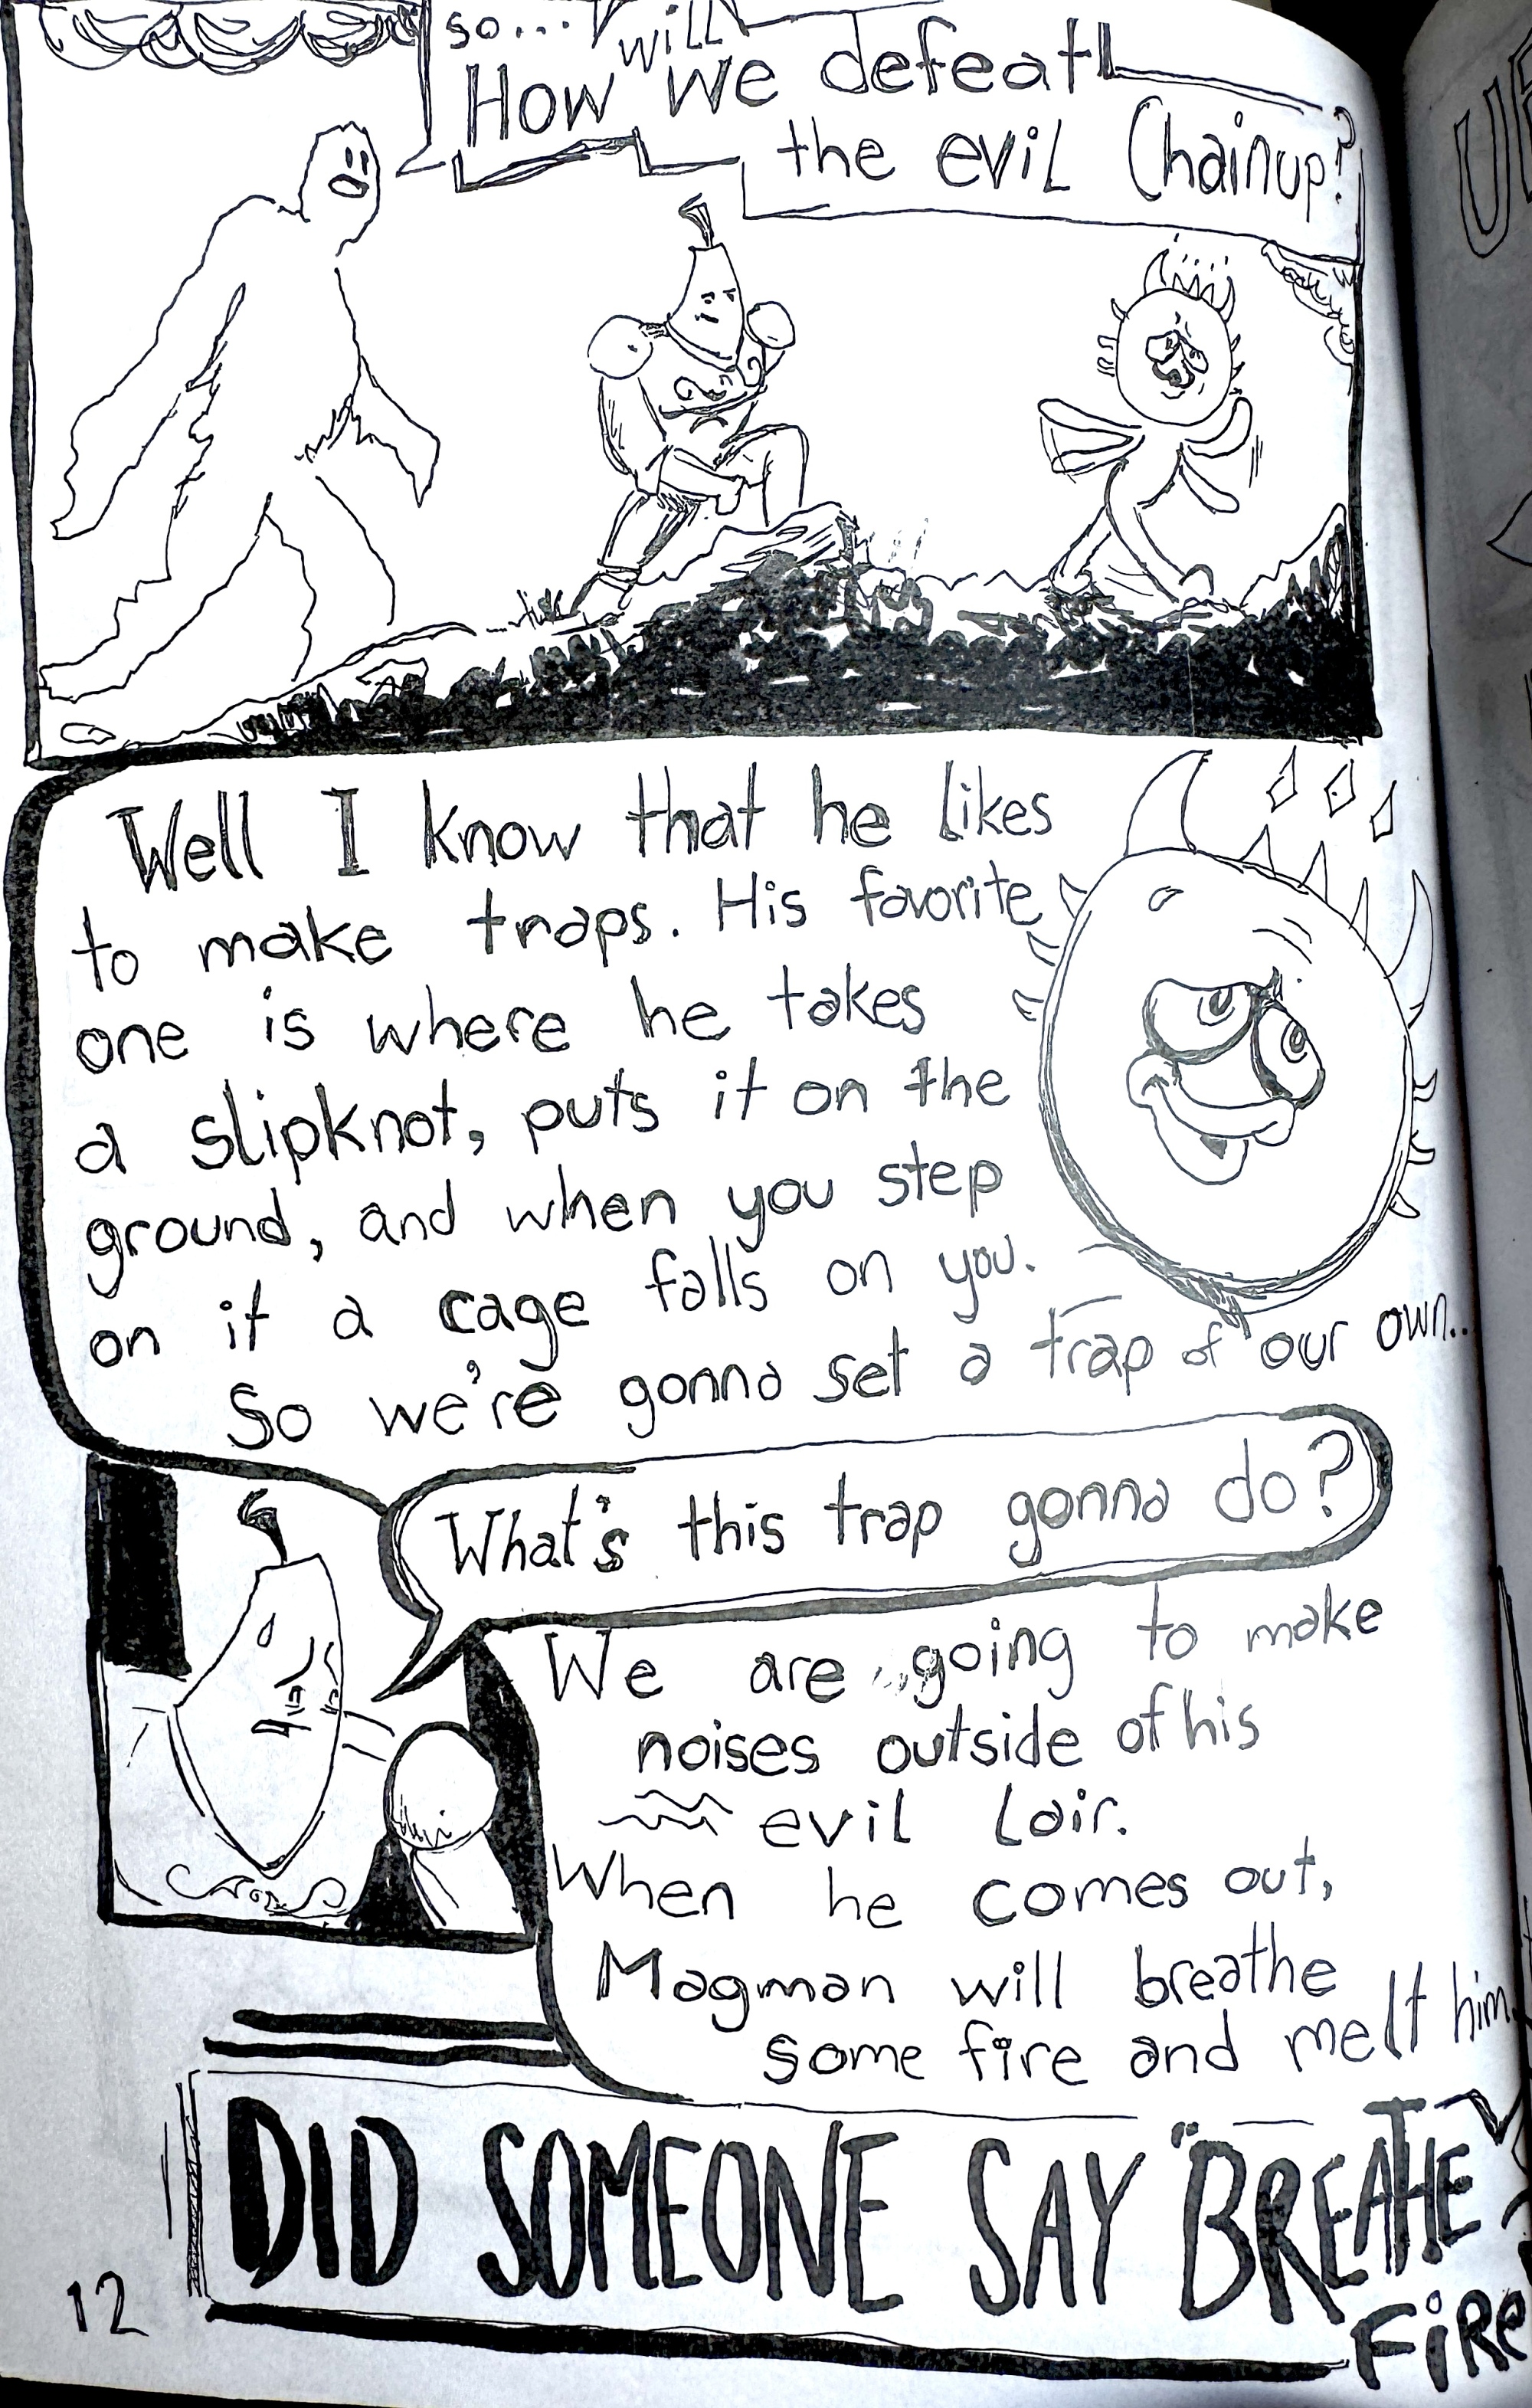 so...
How will we defeat
the evil Chainup?
Well I know that he likes
to make traps. His favorite
one is where he takes
a slipknot, puts it on the
ground, and when you step
on it a cage falls on you.
So we're gonna set a trap of our own..
What's this trap gonna do?
We are going to make
noises outside of his
evil lair.
When he comes out,
Magman will breathe
some fire and melt him.
DID SOMEONE SAY "BREATHE
FiRE
12